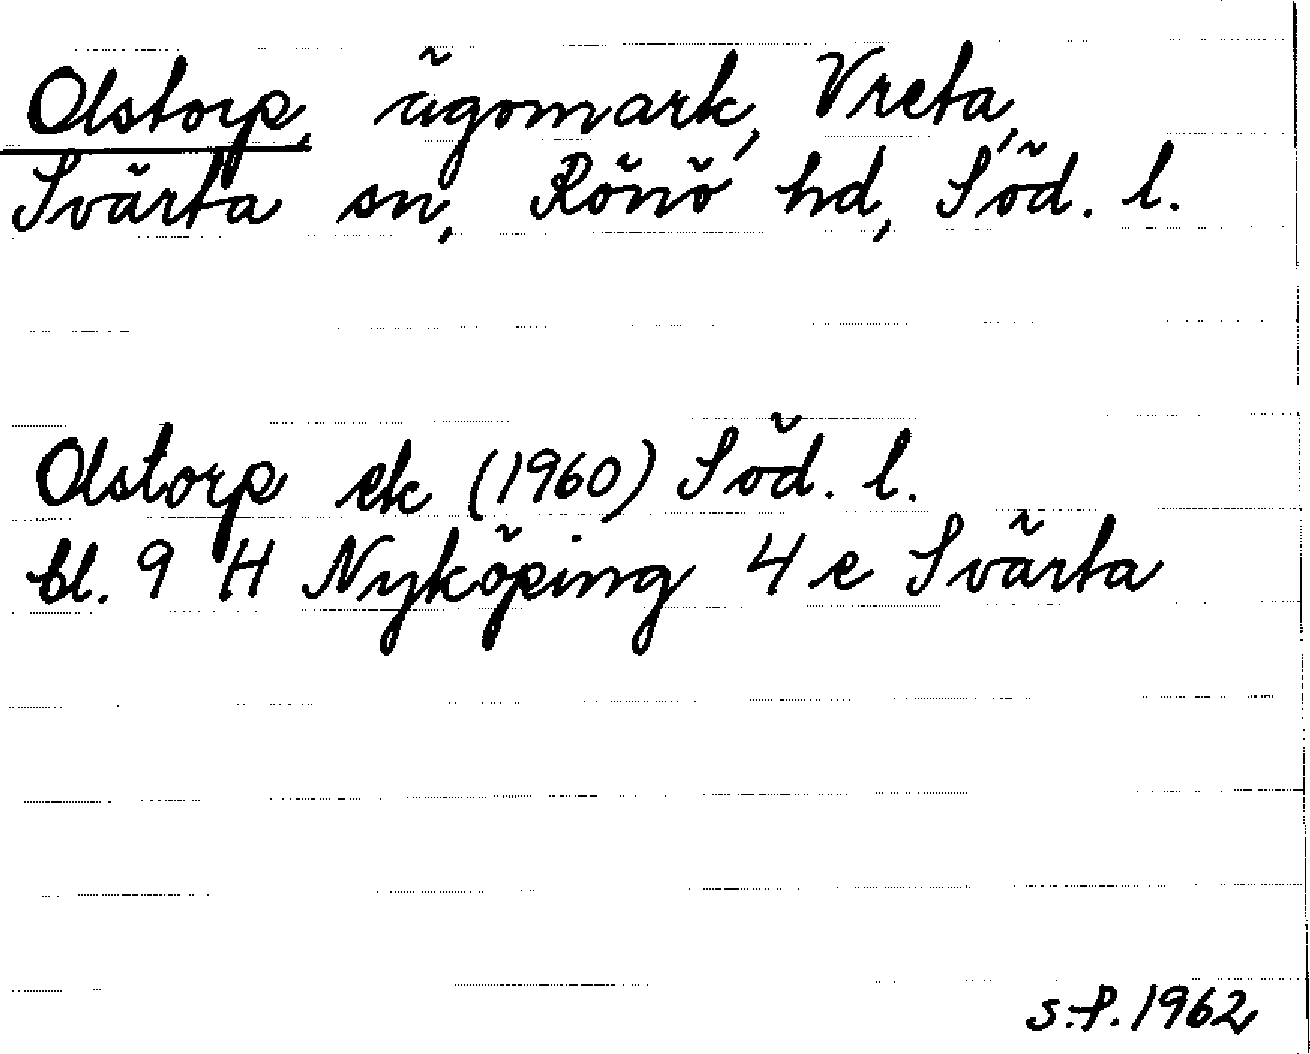 Olstorp, ägomark, Vreta,
Svärta sn, Rönö hd, Söd. l.
Olstorp ek (1960) Söd. l.
bl. 9 H Nyköping 4 e Svärta
s.f. 1962